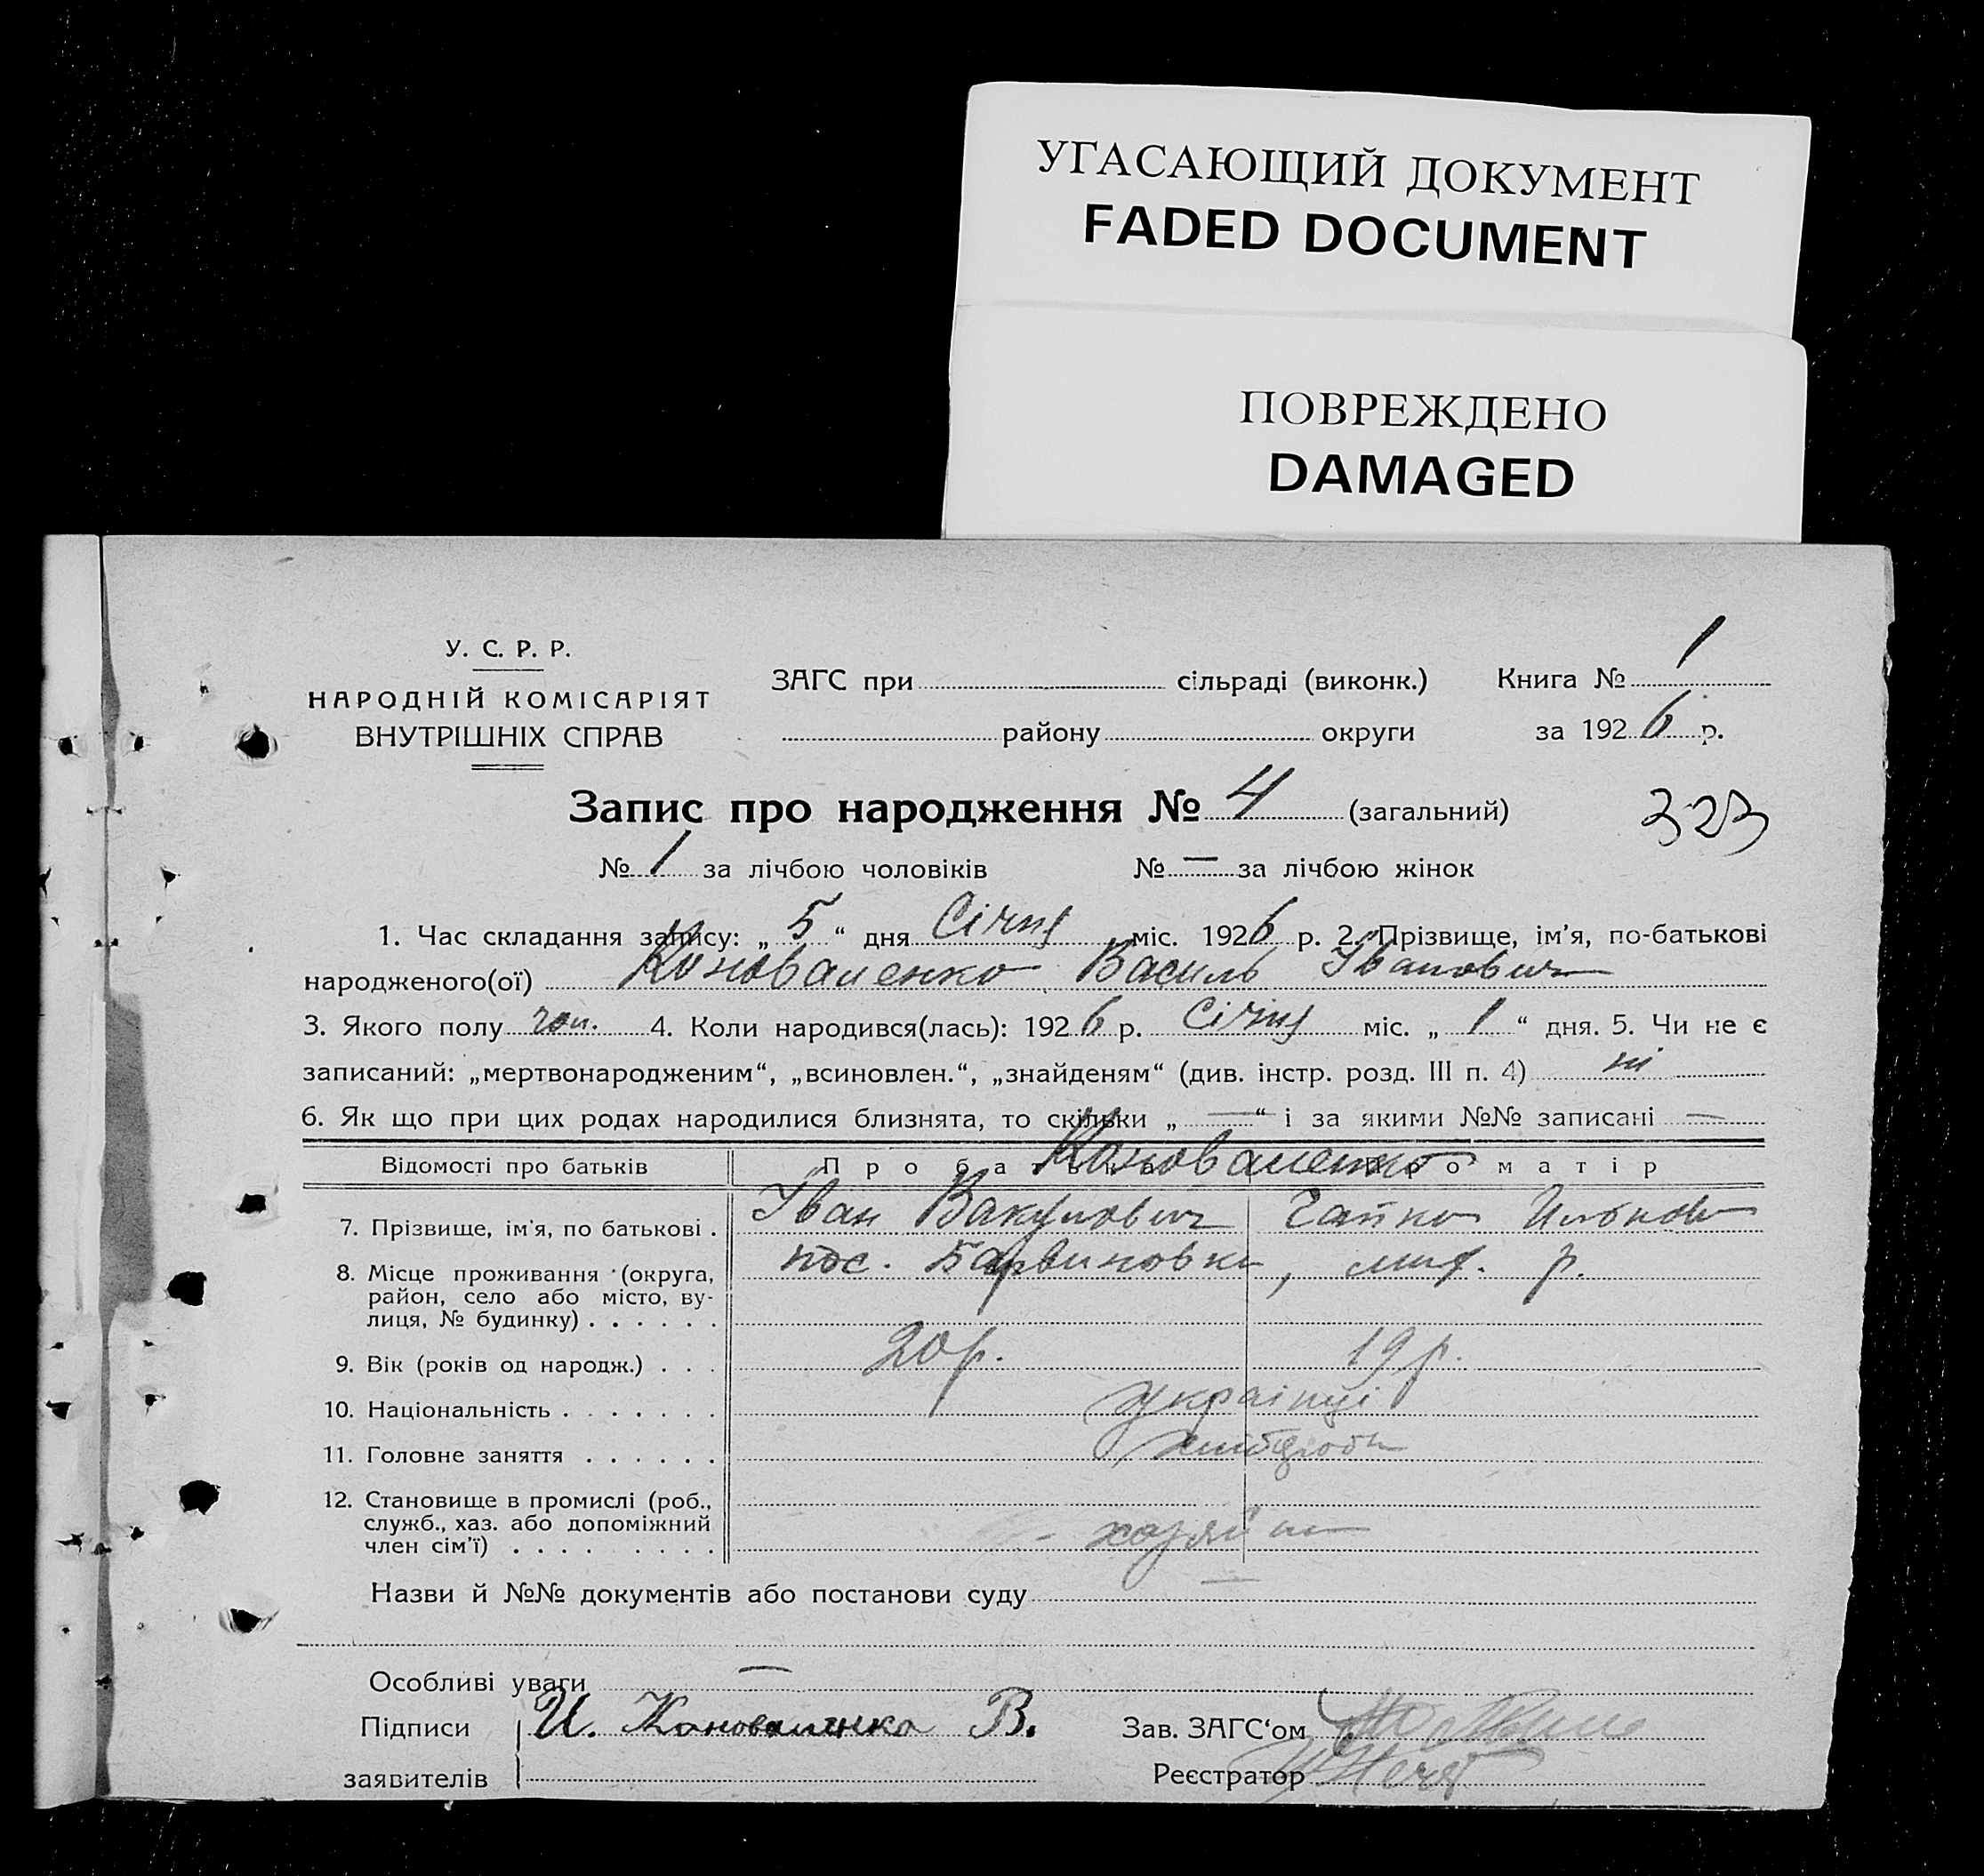 УГАСАЮЩИЙ ДОКУМЕНТ
FADED DOCUMENT
ПОВРЕЖДЕНО
DAMAGED
У. С. Р. Р.
НАРОДНІЙ КОМІСАРІЯТ
ВНУТРІШНІХ СПРАВ
ЗАГС при сільраді (виконк.)
району округи
Книга № 1
за 1926 р.
Запис про народження № 4 (загальний)
323
№ 1 за лічбою чоловіків № — за лічбою жінок
1. Час складання запису: „ 5 “ дня Січня міс. 1926 р. 2. Прізвище, ім’я, по-батькові
народженого(ої) Коноваленко Василь Іванович
3. Якого полу чол. 4. Коли народився(лась): 1926 р. Січня міс. „ 1 “ дня. 5. Чи не є
записаний: „мертвонародженим“, „всиновлен.“, „знайденям“ (див. інстр. розд. III п. 4) ні
6. Як що при цих родах народилися близнята, то скільки „ — “ і за якими №№ записані —
Відомості про батьків Про батька Про матір
Коноваленко
7. Прізвище, ім’я, по батькові . Іван Вакулович
8. Місце проживання (округа, район, село або місто, вулиця, № будинку) . . . . . . пос. Барвиновка, р.
9. Вік (років од народж.) . . . 20 р. 19 р.
10. Національність . . . . . . . українці
11. Головне заняття . . . . . . хлібороби
12. Становище в промислі (роб., служб., хаз. або допоміжний член сім’ї) . . . . . . . . - хозяїни
Назви й №№ документів або постанови суду —
Особливі уваги —
Підписи заявителів И. Коноваленко В.
Зав. ЗАГС‘ом
Реєстратор